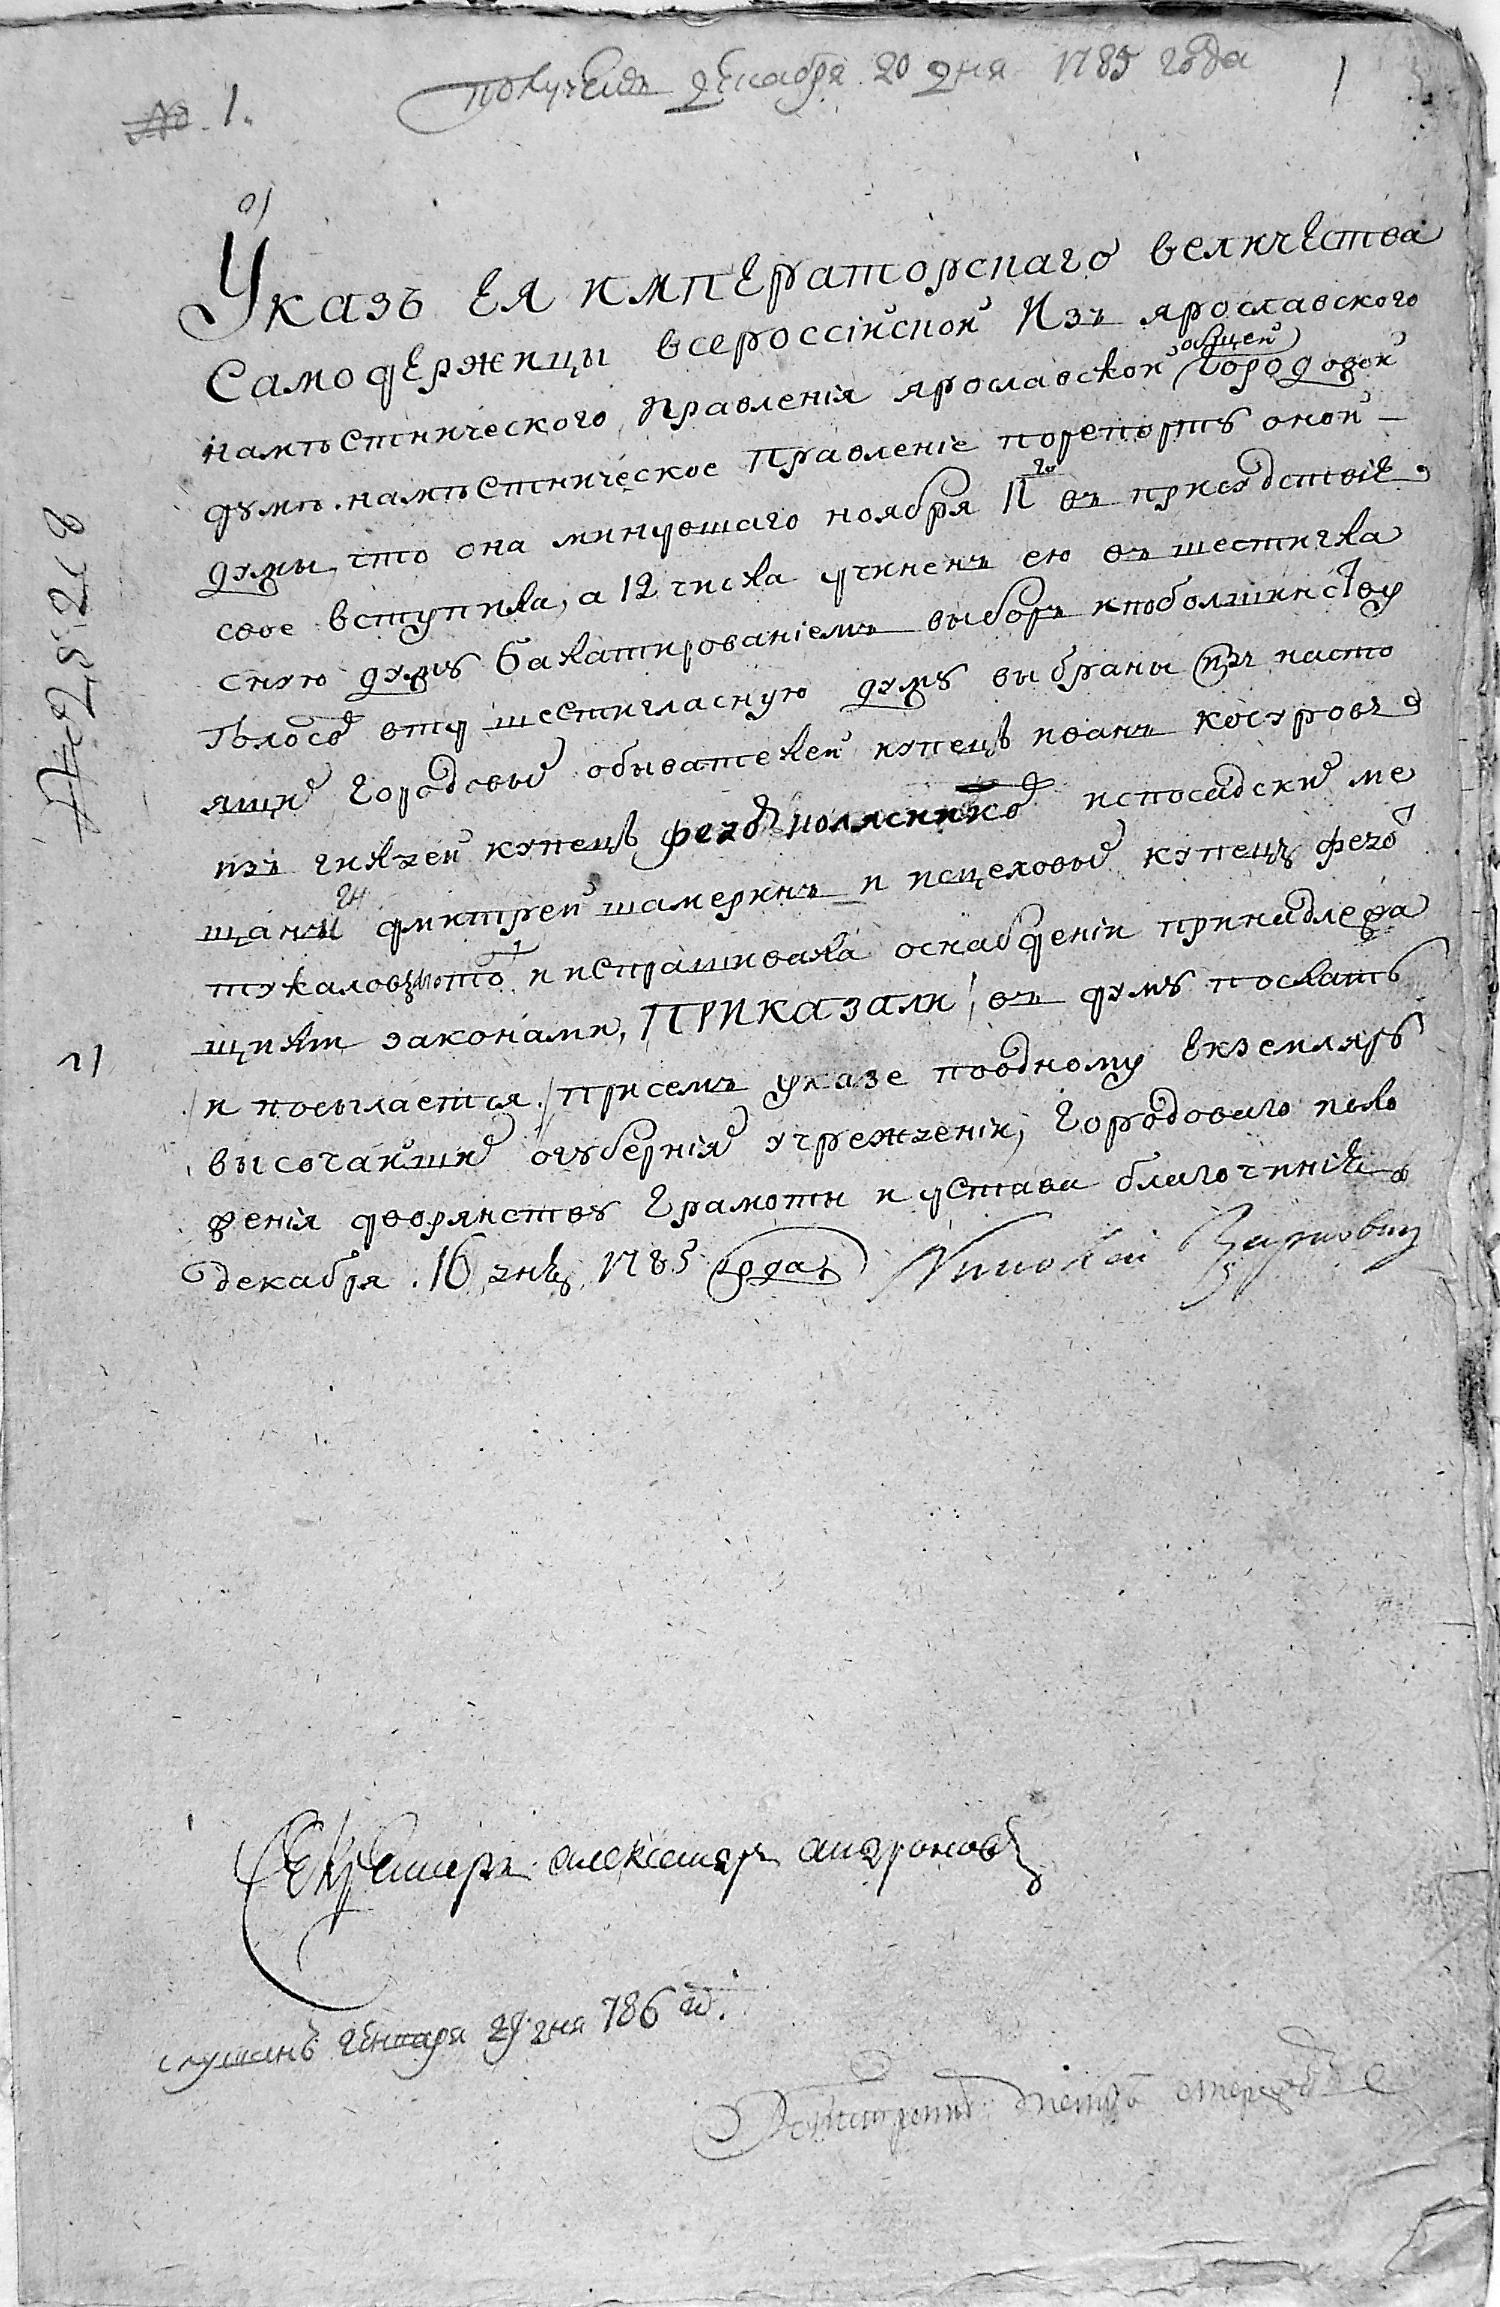 получен декабря 20 дня 1785 года
№ 1.
1
Указъ ея императорскаго величества
самодержицы всероссійской изъ ярославского
намѣстнического правленія ярославской общей городовой
думѣ. намѣстническое правленіе порепорту оной
думы что она минувшаго ноября 11 го въ присудствіе
свое вступила, а 12 числа учиненъ ею въ шестигла
сную думу балатированіемъ выборъ ипоболшинству
голосов вту шестигласную думу выбраны изъ насто
ящих городовых обывателей купецъ иванъ косуровъ
изъ гильдей купецъ федоръ исполадских ме
щанинъ дмитрей шамеринъ и исцеховых купецъ федо
тукаловъ что и испрашивала оснабдении принадлежа
щих законами, приказали въ думу послать
и посылается присемъ указе поодному екземпляру
высочайших огуберниях учреждении, городоваго поло
жения дворянству грамоты и устава благочиния
декабря 16 дня 1785 года
№ 25218
Секретарь александръ андроновъ
слушанъ генваря 29 дня 786 го.